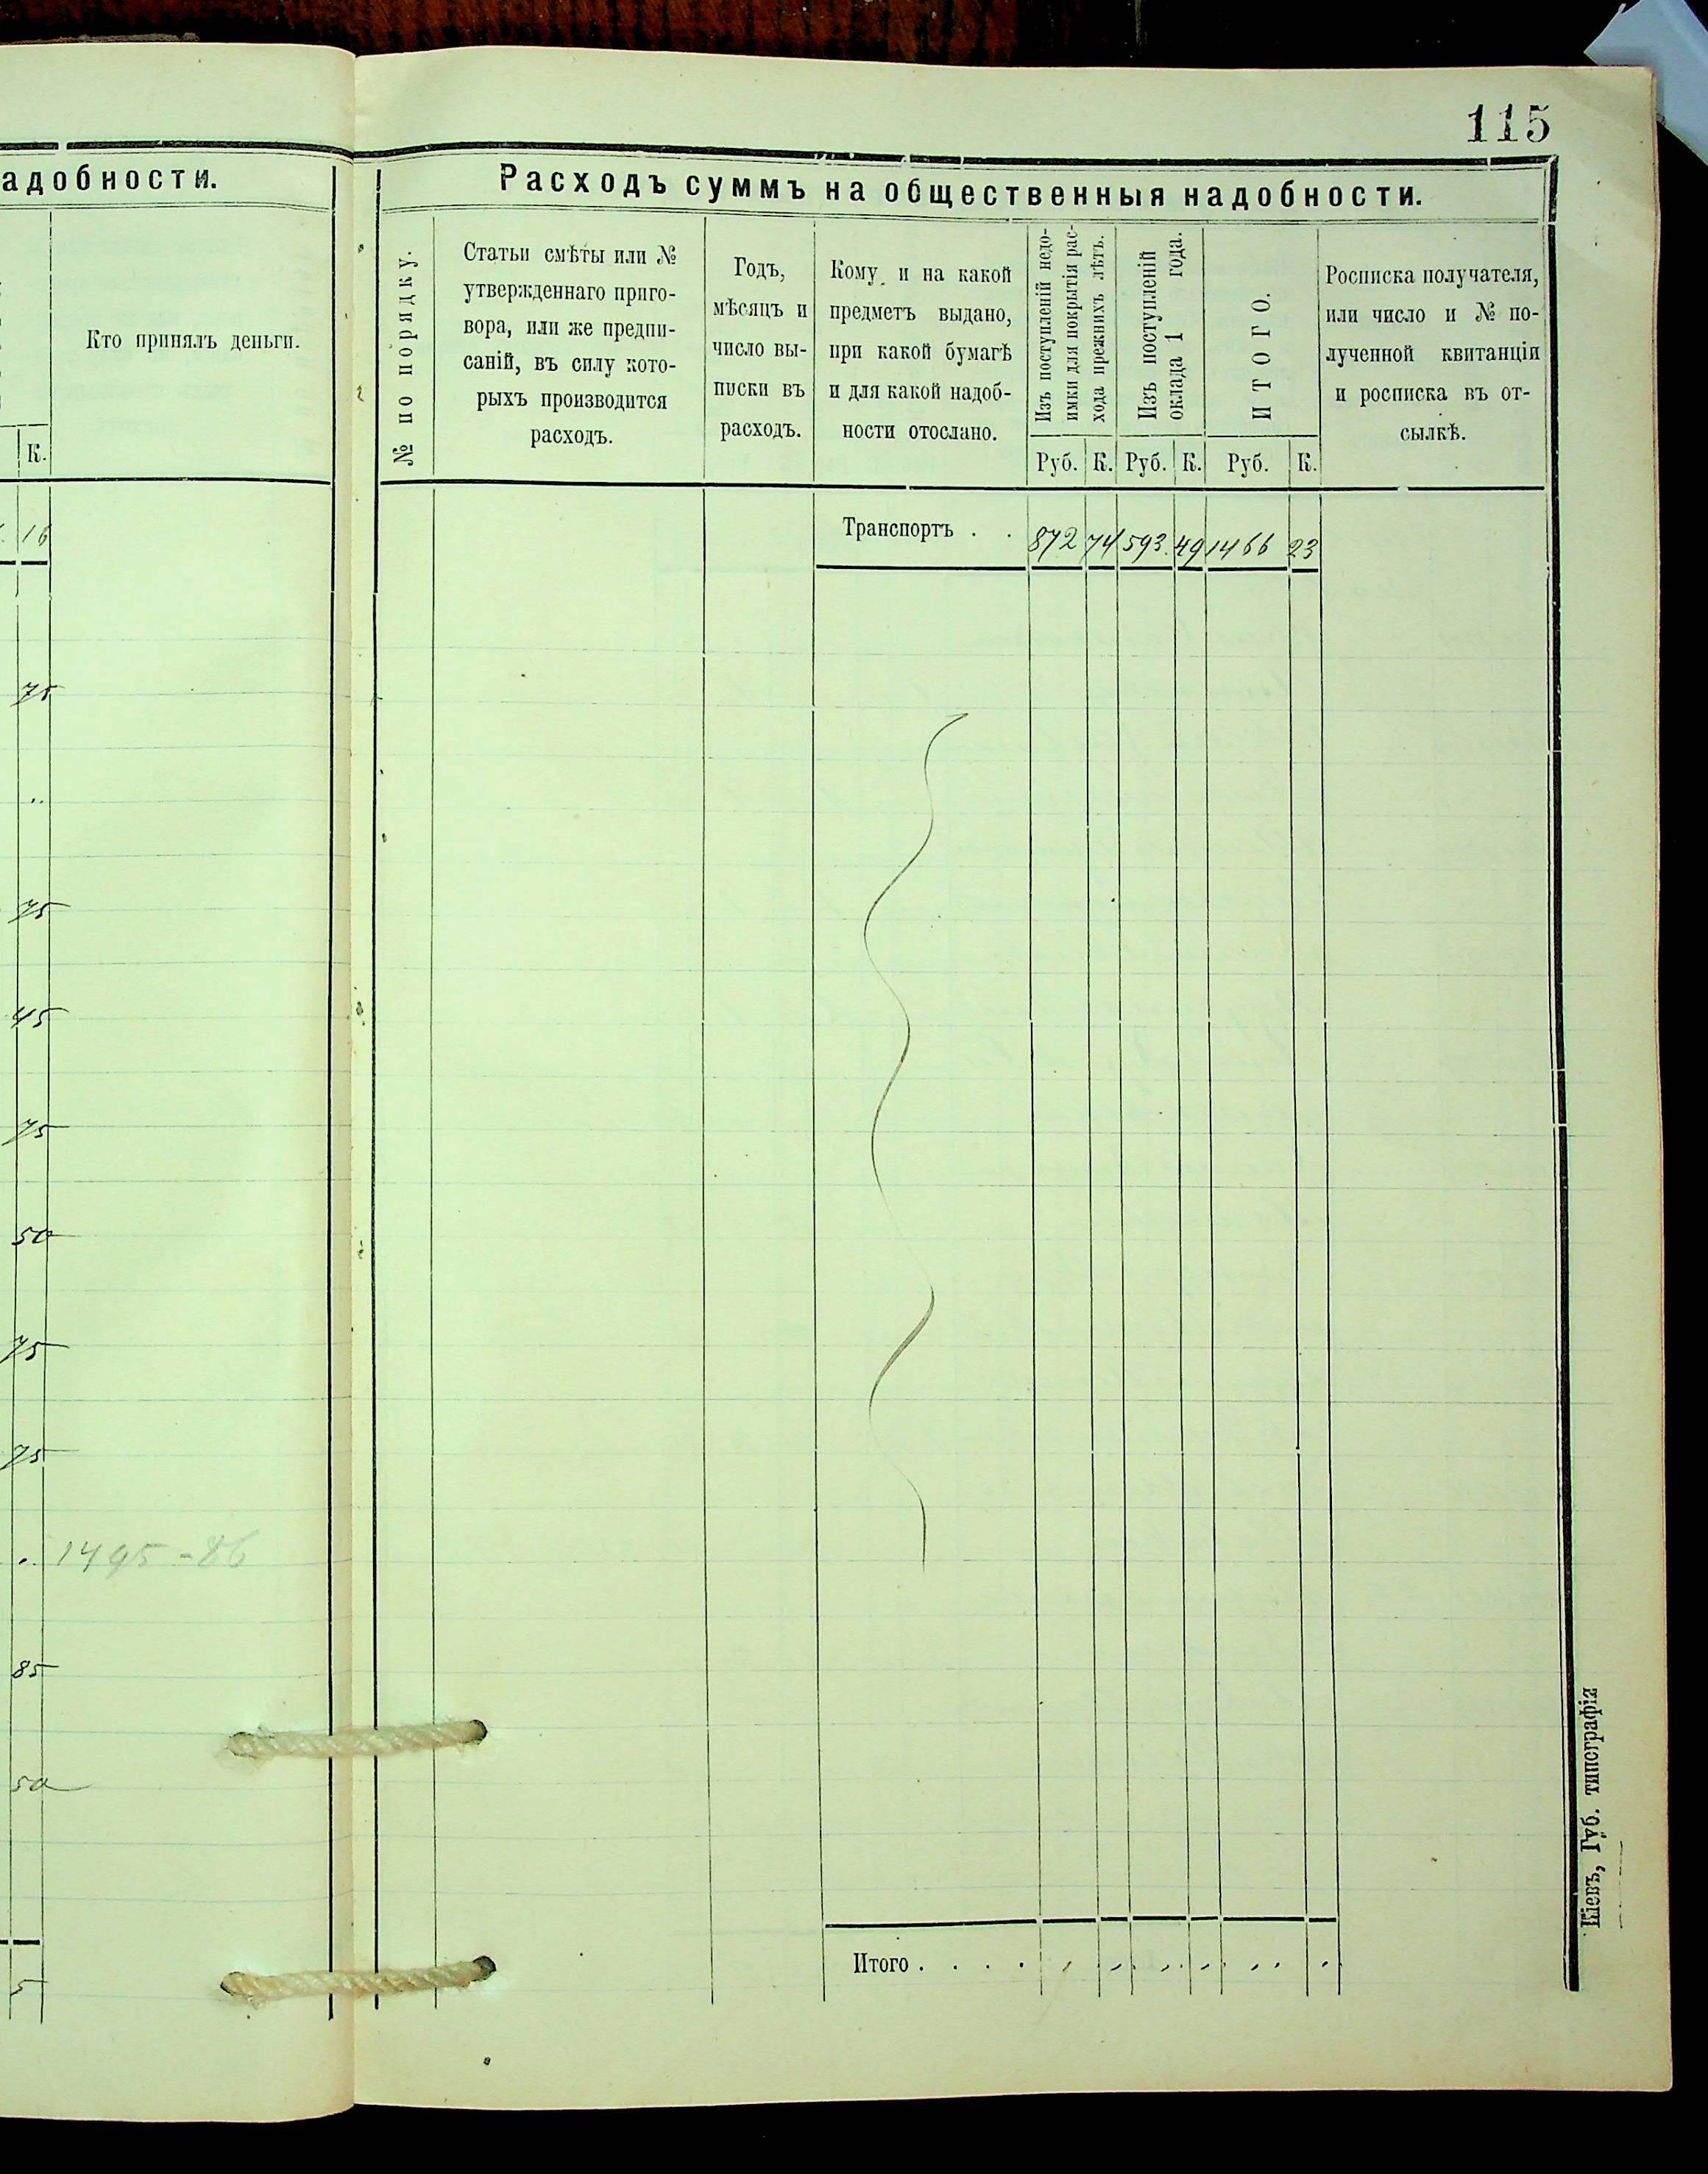 115
адобности.
К.
Кто принялъ деньги.
16
75
75
45
75
50
75
75
1495-86
85
50
5
Расходъ суммъ на общественныя надобности.
№ по порядку.
Статьи смѣты или №
утвержденнаго приго-
вора, или же предпи-
саній, въ силу кото-
рыхъ производится
расходъ.
Годъ,
мѣсяцъ и
число вы-
писки въ
расходъ.
Кому и на какой
предметъ выдано,
при какой бумагѣ
и для какой надоб-
ности отослано.
Изъ поступленій недо-
имки для покрытія рас-
хода прежнихъ лѣтъ.
Изъ поступленій
оклада 1 года.
ИТОГО.
Руб. К. Руб. К. Руб. К.
Росписка получателя,
или число и № по-
лученной квитанціи
и росписка въ от-
сылкѣ.
Транспортъ . . 872 74 593 49 1466 23
Итого . . . .
Кіевъ, Губ. типографія